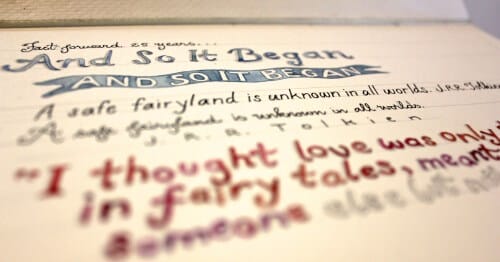 Fast forward 25 years...
And So It Began
AND SO IT BEGAN
A safe fairyland is unknown in all worlds. J.R.R. Tolkien
A safe fairyland is unknown in all worlds.
J. R. R. Tolkien
"I thought love was only
in fairy tales, meant
someone else but not